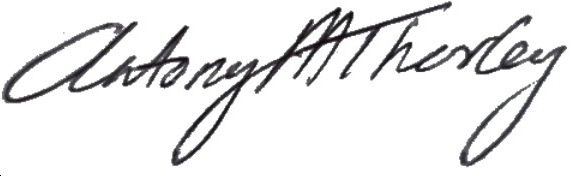 Antony M Thorley